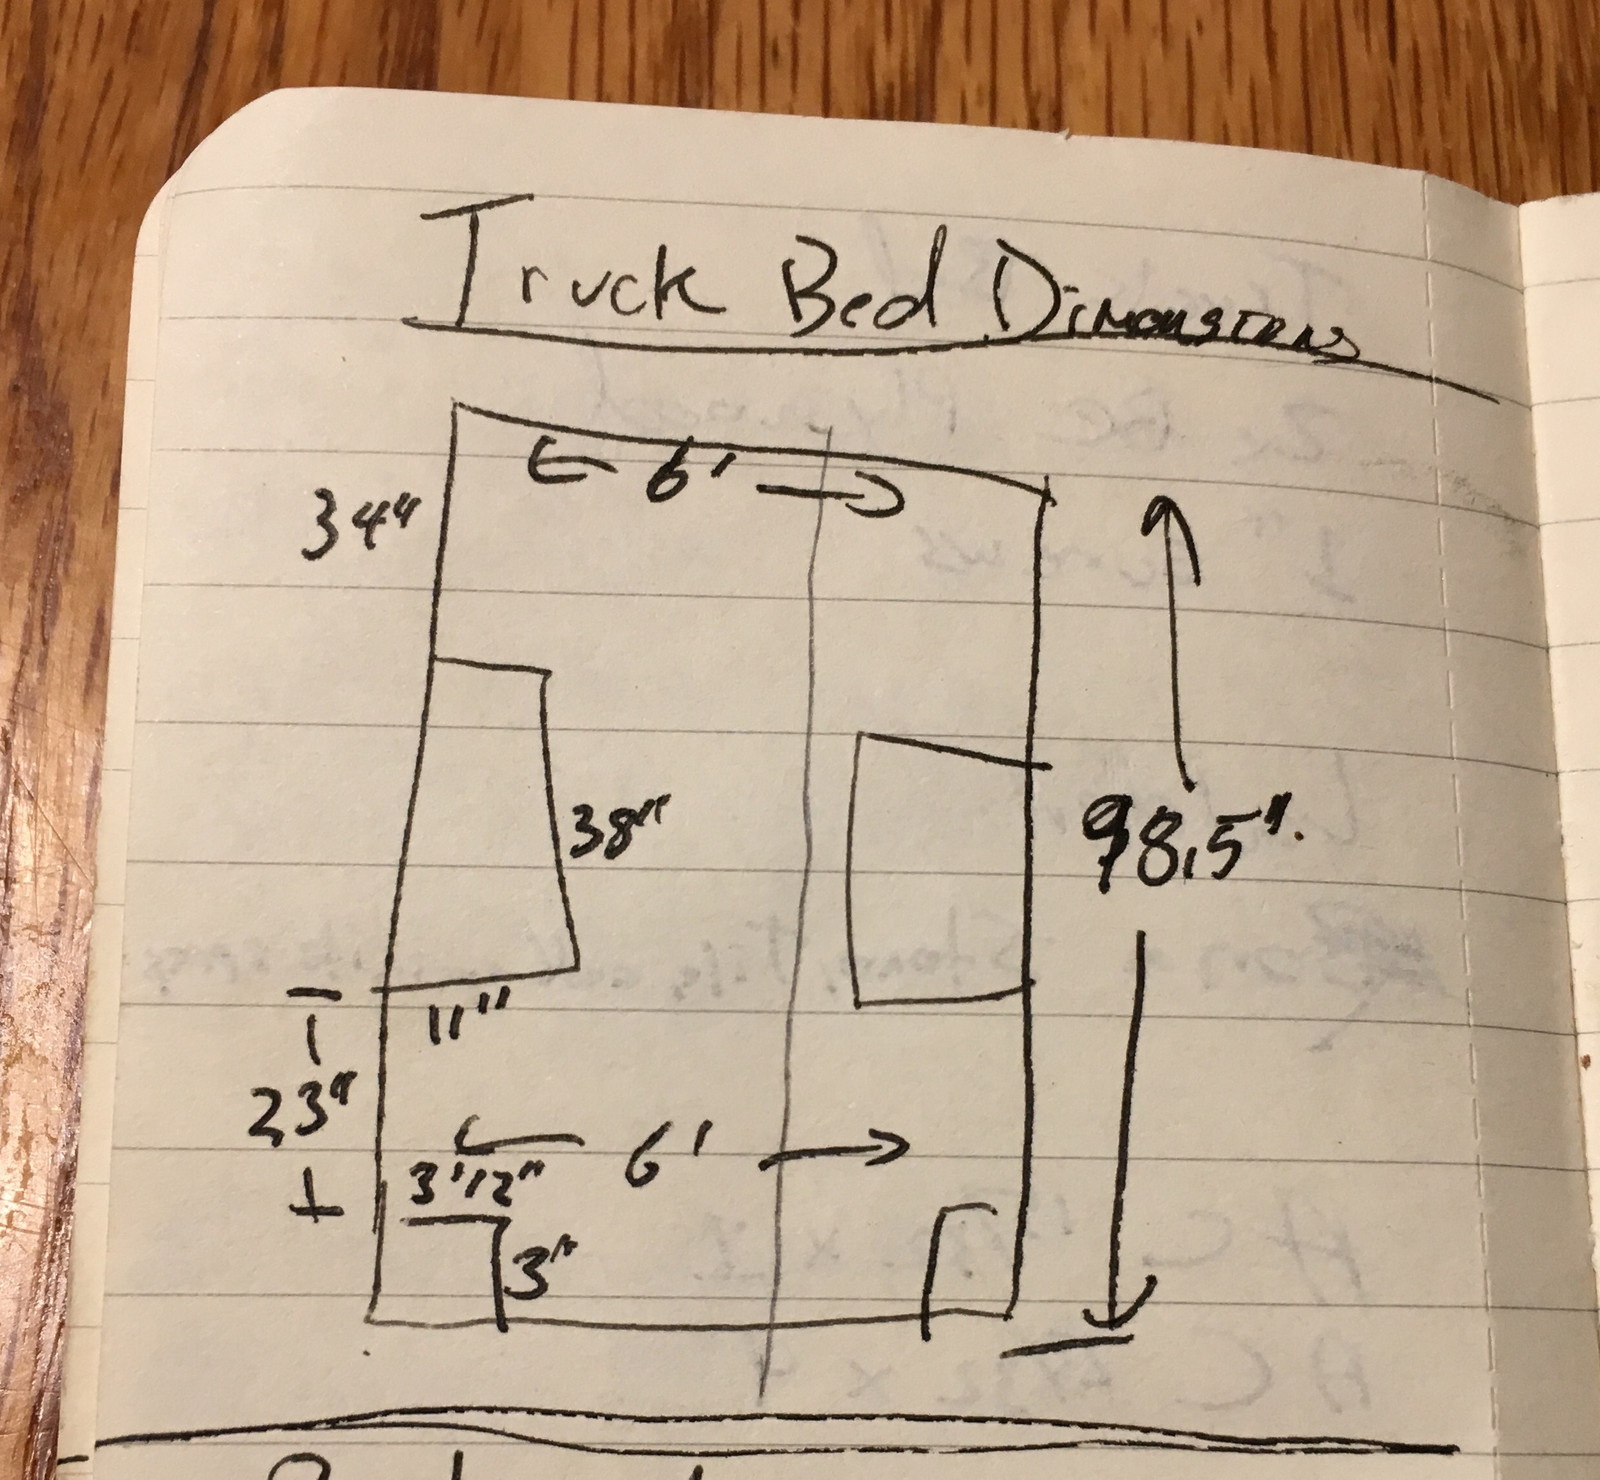 Truck Bed Dimensions
← 6' →
34"
38"
98.5"
11"
23"
← 6' →
3'12"
3"